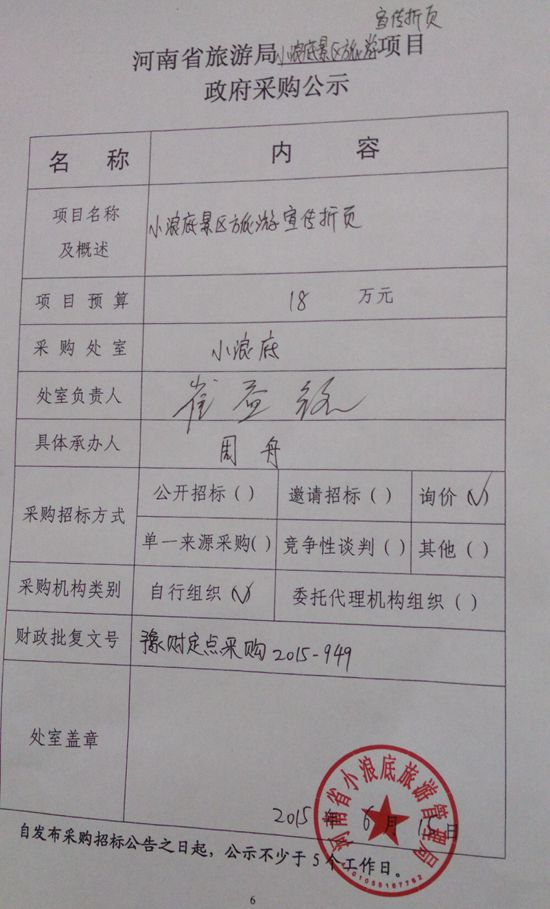 宣传折页
河南省旅游局小浪底景区旅游项目
政府采购公示
名 称 内 容
项目名称及概述 小浪底景区旅游宣传折页
项目预算 18 万元
采购处室 小浪底
处室负责人 崔益
具体承办人 周舟
采购招标方式 公开招标（ ） 邀请招标（ ） 询价（√）
单一来源采购( ) 竞争性谈判（ ） 其他（ ）
采购机构类别 自行组织（√） 委托代理机构组织（ ）
财政批复文号 豫财定点采购2015-949
处室盖章
河南省小浪底旅游管理局
2015 年 6 月 日
自发布采购招标公告之日起，公示不少于5个工作日。
6